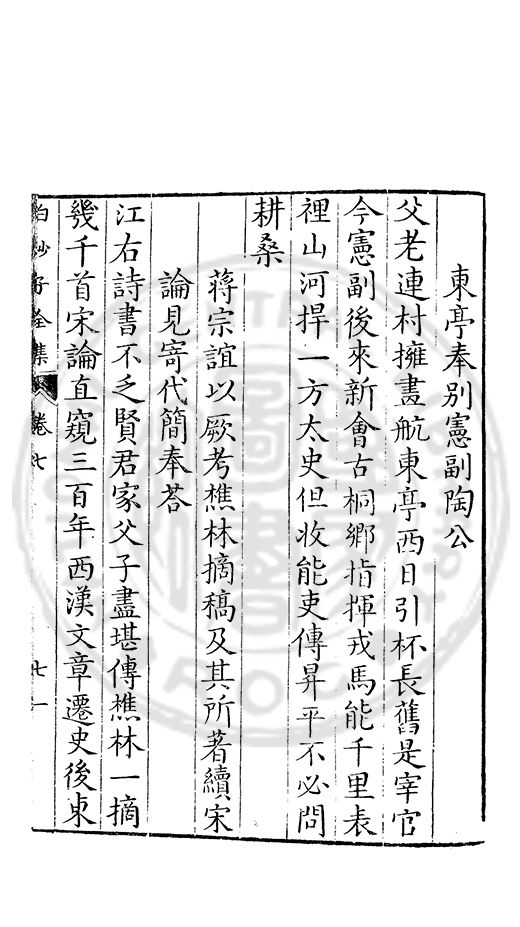 東亭奉别憲副陶公
父老連村擁畫航東亭西日引杯長舊是宰官
今憲副後來新會古桐鄉指揮戎馬能千里表
裡山河捍一方太史但收能吏傳昇平不必問
耕桑
蔣宗誼以厥考樵林摘稿及其所著續宋
論見寄代簡奉荅
江右詩書不乏賢君家父子盡堪傳樵林一摘
幾千首宋論直窺三百年西漢文章遷史後東
白沙子全集 卷七 七一